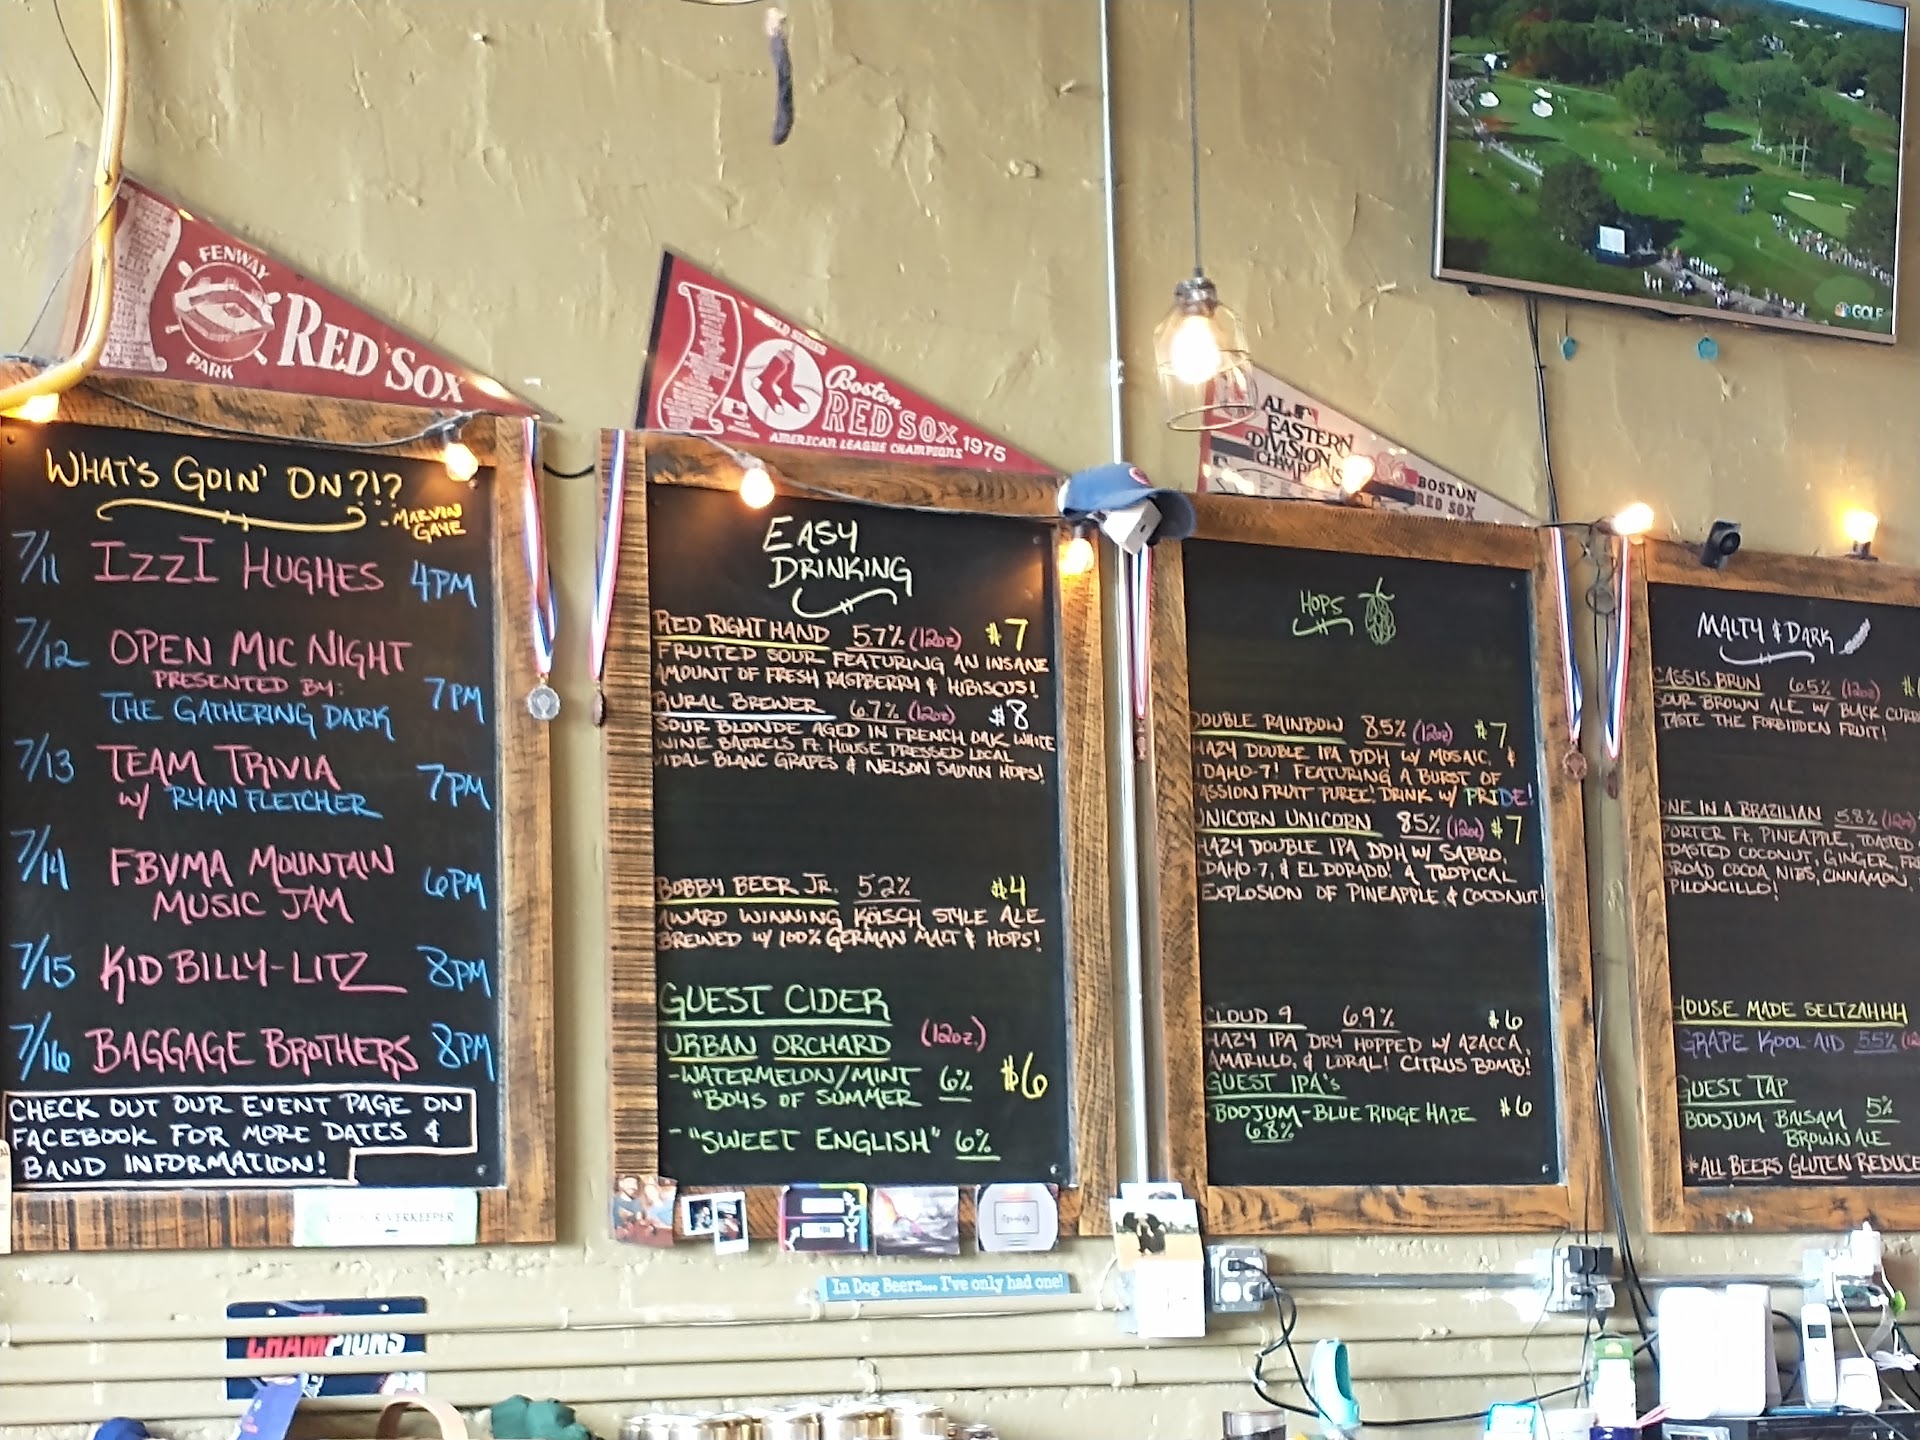 FENWAY
PARK
RED SOX
WORLD SERIES
Boston
RED SOX
1975
AMERICAN LEAGUE CHAMPIONS
AL
EASTERN
DIVISION
CHAMPIONS
86 BOSTON
RED SOX
GOLF
WHAT'S GOIN' ON?!?
- MARVIN
GAYE
7/11 IZZI HUGHES 4PM
7/12 OPEN MIC NIGHT
PRESENTED BY: 7PM
THE GATHERING DARK
7/13 TEAM TRIVIA 7PM
W/ RYAN FLETCHER
7/14 FBVMA MOUNTAIN 6PM
MUSIC JAM
7/15 KID BILLY-LITZ 8PM
7/16 BAGGAGE BROTHERS 8PM
CHECK OUT OUR EVENT PAGE ON
FACEBOOK FOR MORE DATES &
BAND INFORMATION!
RIVERKEEPER
EASY
DRINKING
RED RIGHT HAND 5.7% (12oz) $7
FRUITED SOUR FEATURING AN INSANE
AMOUNT OF FRESH RASPBERRY & HIBISCUS!
RURAL BREWER 6.7% (12oz) $8
SOUR BLONDE AGED IN FRENCH OAK WHITE
WINE BARRELS Ft. HOUSE PRESSED LOCAL
VIDAL BLANC GRAPES & NELSON SAUVIN HOPS!
BOBBY BEER JR. 5.2% $4
AWARD WINNING KÖLSCH STYLE ALE
BREWED W/ 100% GERMAN MALT & HOPS!
GUEST CIDER
URBAN ORCHARD (12oz.)
-WATERMELON/MINT 6% $6
"BOYS OF SUMMER
- "SWEET ENGLISH" 6%
HOPS
DOUBLE RAINBOW 8.5% (12oz) $7
HAZY DOUBLE IPA DDH W/ MOSAIC, &
IDAHO-7! FEATURING A BURST OF
PASSION FRUIT PUREE! DRINK W/ PRIDE!
UNICORN UNICORN 8.5% (12oz) $7
HAZY DOUBLE IPA DDH W/ SABRO,
IDAHO-7, & EL DORADO! A TROPICAL
EXPLOSION OF PINEAPPLE & COCONUT!
CLOUD 9 6.9% $6
HAZY IPA DRY HOPPED W/ AZACCA,
AMARILLO, & LORAL! CITRUS BOMB!
GUEST IPA's
BODJUM-BLUE RIDGE HAZE $6
6.8%
MALTY & DARK
CASSIS BRUN 6.5% (12oz) $
SOUR BROWN ALE W/ BLACK CURR
TASTE THE FORBIDDEN FRUIT!
ONE IN A BRAZILIAN 5.8% (12oz)
PORTER Ft. PINEAPPLE, TOASTED
TOASTED COCONUT, GINGER, FR
BROAD COCOA NIBS, CINNAMON,
PILONCILLO!
HOUSE MADE SELTZAHHH
GRAPE KOOL-AID 5.5% (12
GUEST TAP
BODJUM BALSAM 5%
BROWN ALE
*ALL BEERS GLUTEN REDUCE
In Dog Beers... I've only had one!
CHAMPIONS